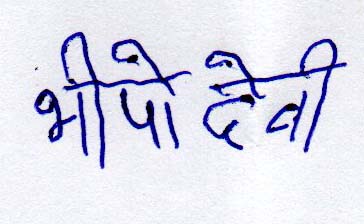 भीपो देवी